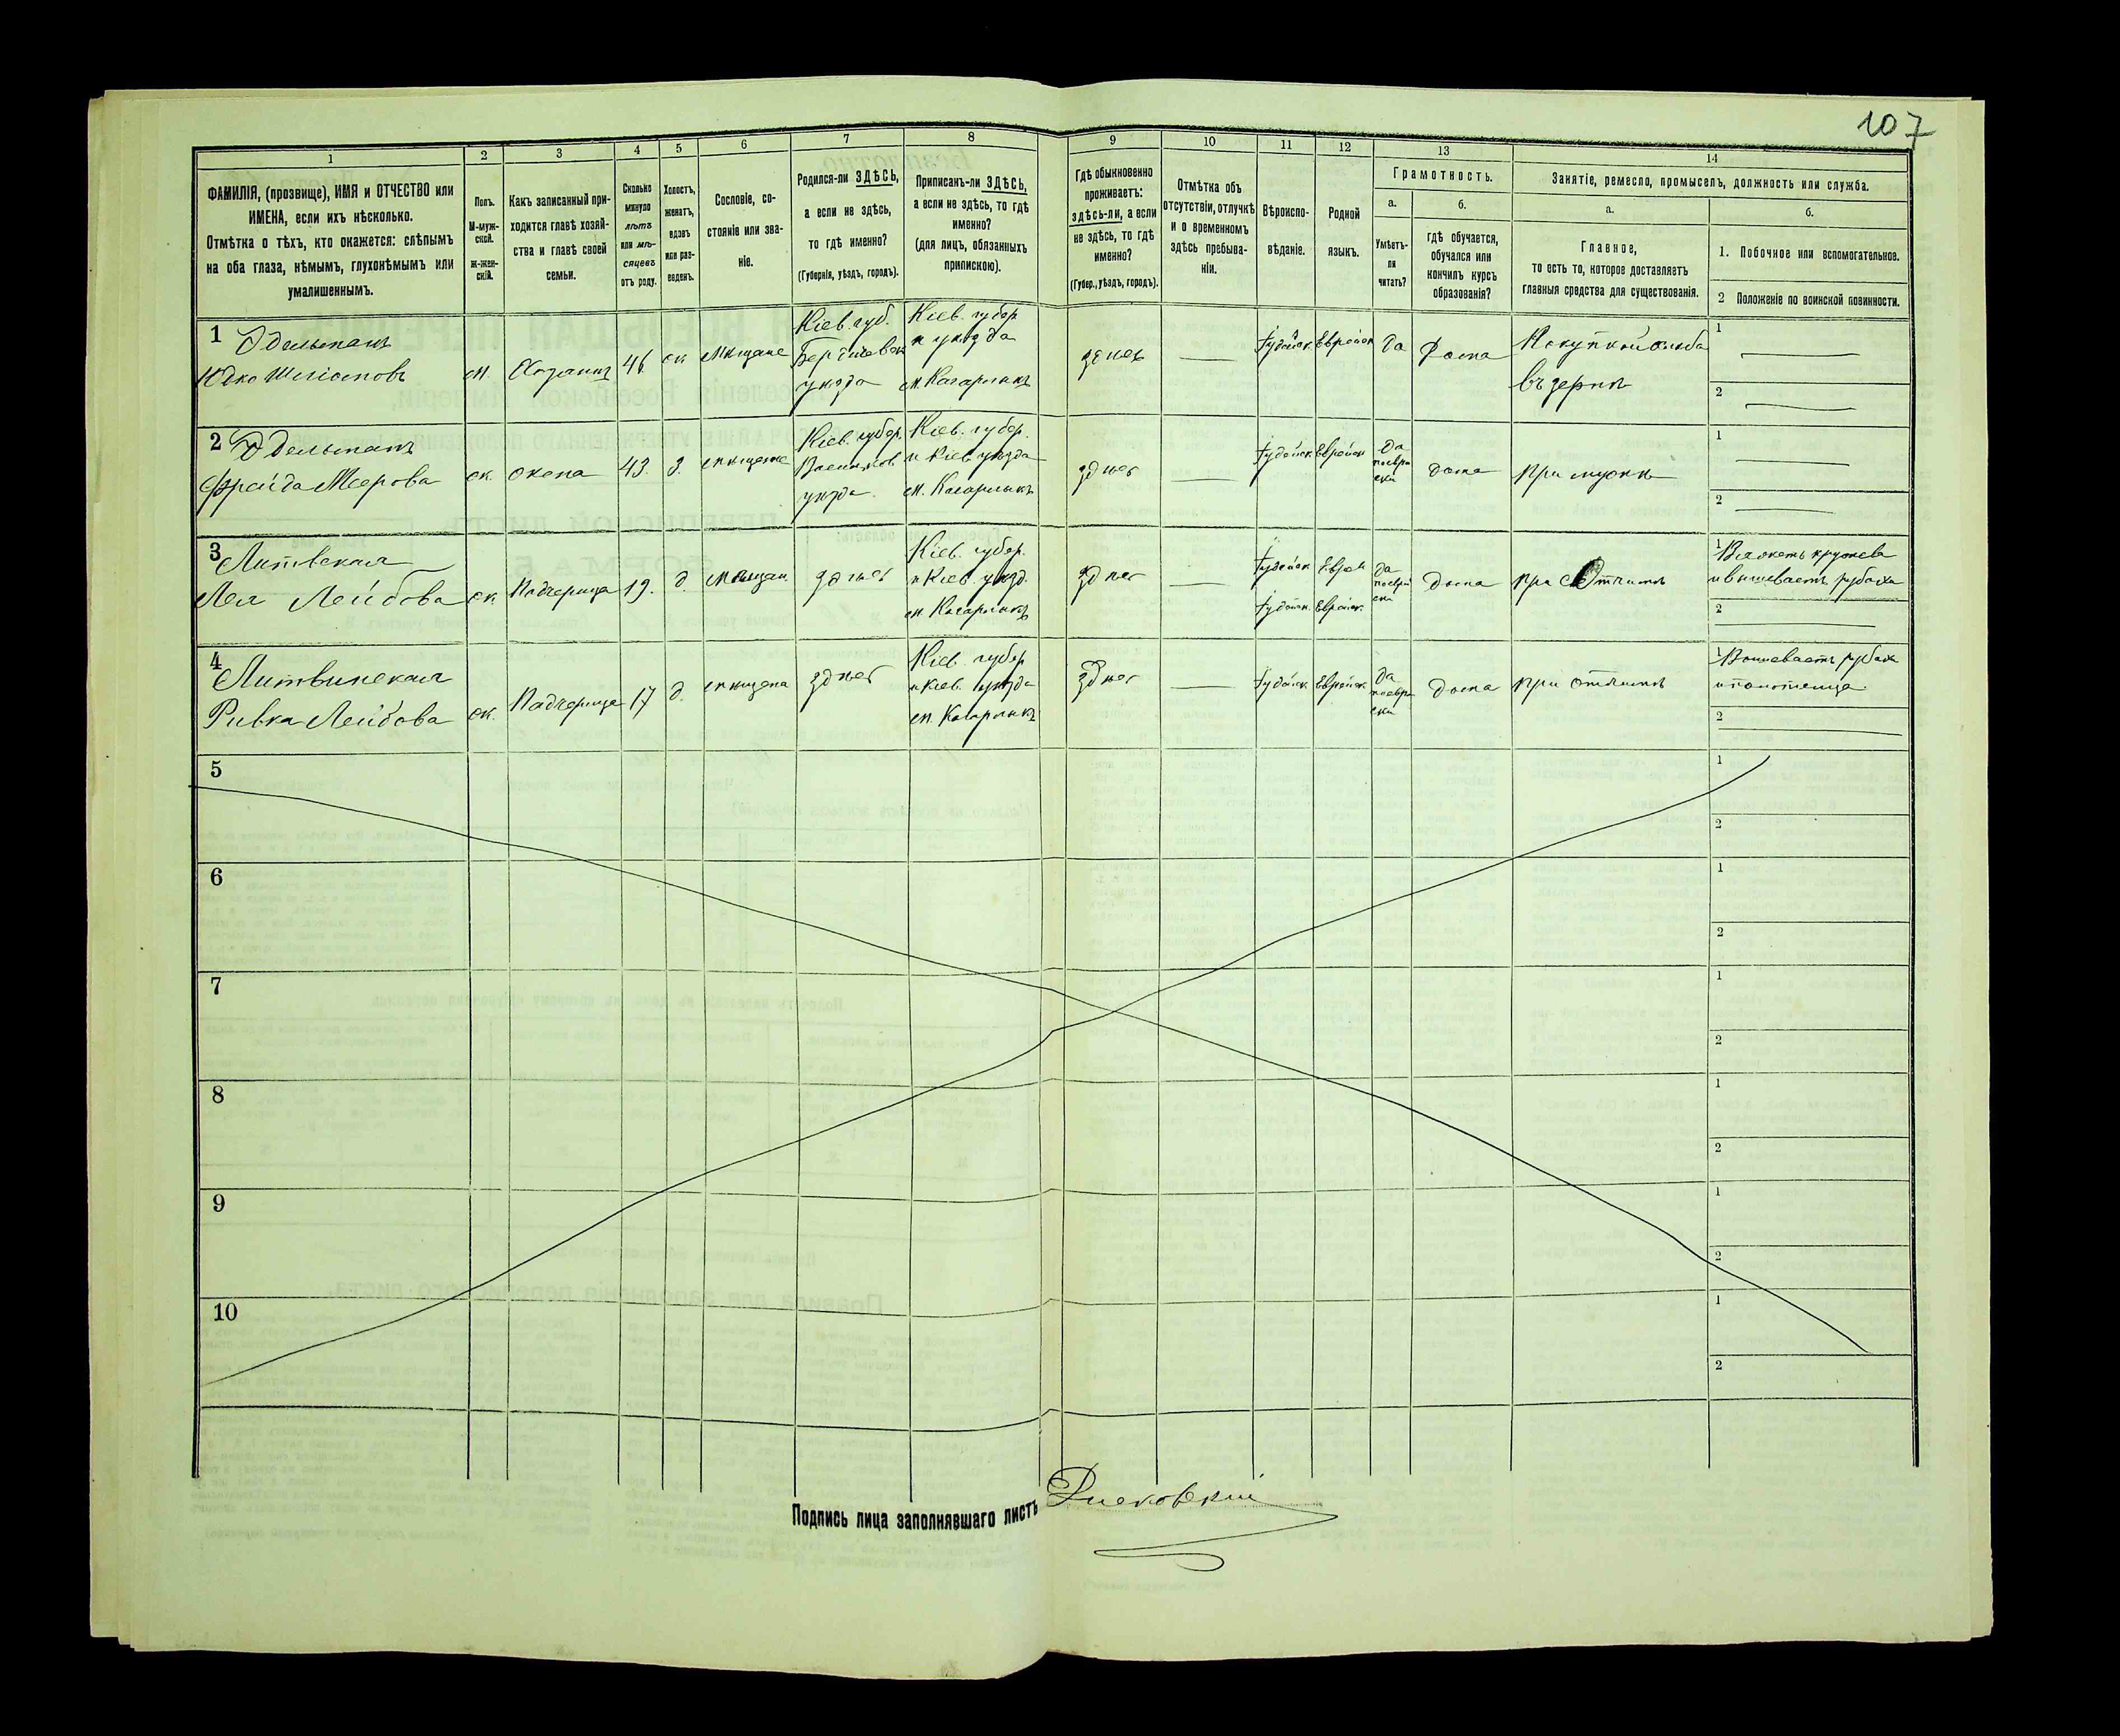 107
1
2
3
4
5
6
7
8
9
10
11
12
13
14
ФАМИЛІЯ, (прозвище), ИМЯ и ОТЧЕСТВО или
ИМЕНА, если ихъ нѣсколько.
Отмѣтка о тѣхъ, кто окажется: слѣпымъ
на оба глаза, нѣмымъ, глухонѣмымъ или
умалишеннымъ.
Полъ.
М-муж-
ской.
Ж-жен-
скій.
Какъ записанный при-
ходится главѣ хозяй-
ства и главѣ своей
семьи.
Сколько
минуло
лѣтъ
или мѣ-
сяцевъ
отъ роду.
Холостъ,
женатъ,
вдовъ
или раз-
веденъ.
Сословіе, со-
стояніе или зва-
ніе.
Родился-ли ЗДѢСЬ,
а если не здѣсь,
то гдѣ именно?
(Губернія, уѣздъ, городъ).
Приписанъ-ли ЗДѢСЬ,
а если не здѣсь, то гдѣ
именно?
(для лицъ, обязанныхъ
припискою).
Гдѣ обыкновенно
проживаетъ:
здѣсь-ли, а если
не здѣсь, то гдѣ
именно?
(Губер., уѣздъ, городъ).
Отмѣтка объ
отсутствіи, отлучкѣ
и о временномъ
здѣсь пребыва-
ніи.
Вѣроиспо-
вѣданіе.
Родной
языкъ.
Грамотность.
а.
Умѣетъ-
ли
читать?
б.
гдѣ обучается,
обучался или
кончилъ курсъ
образованія?
Занятіе, ремесло, промыселъ, должность или служба.
а.
Главное,
то есть то, которое доставляетъ
главныя средства для существованія.
б.
1. Побочное или вспомогательное.
2 Положеніе по воинской повинности.
1
Юдко
м.
Хозяинъ
Кіев. губ.
уѣзда
Кіев. губер
и уѣзда
м. Кагарлыкъ
Іудейск.
Еврейск
Да
Дома
въ зернѣ
1
2
2
Фрейда Меерова
ж.
жена
43.
з.
Кіев. губер.
уѣзда
Кіев. губер.
и Кіев. уѣзда
м. Кагарлыкъ
здѣсь
Іудейск
Еврейск
Да
поевре
ски
дома
при мужѣ
1
2
3
Лея Лейбова
ж.
Падчерица
19.
д.
здѣсь
Кіев. губер.
и Кіев. уѣзд.
м. Кагарлыкъ
здѣсь
Іудейск
Еврей
Іудейск.
Еврейск.
Да
поеврей
ски
дома
при Отчимѣ
1 Вяжетъ кружева
и вышиваетъ рубахи
2
4 Литвинская
Ривка Лейбова
ж.
Падчерица
17
д.
здѣсь
Кіев. губер
и Кіев. уѣзда
м. Кагарлыкъ
здѣсь
Іудейск
Еврейск
Да
поевре
ски
дома
при отчимѣ
1 Вышиваетъ рубахи
и полотенца
2
5
1
2
6
1
2
7
1
2
8
1
2
9
1
2
10
1
2
Подпись лица заполнявшаго листъ